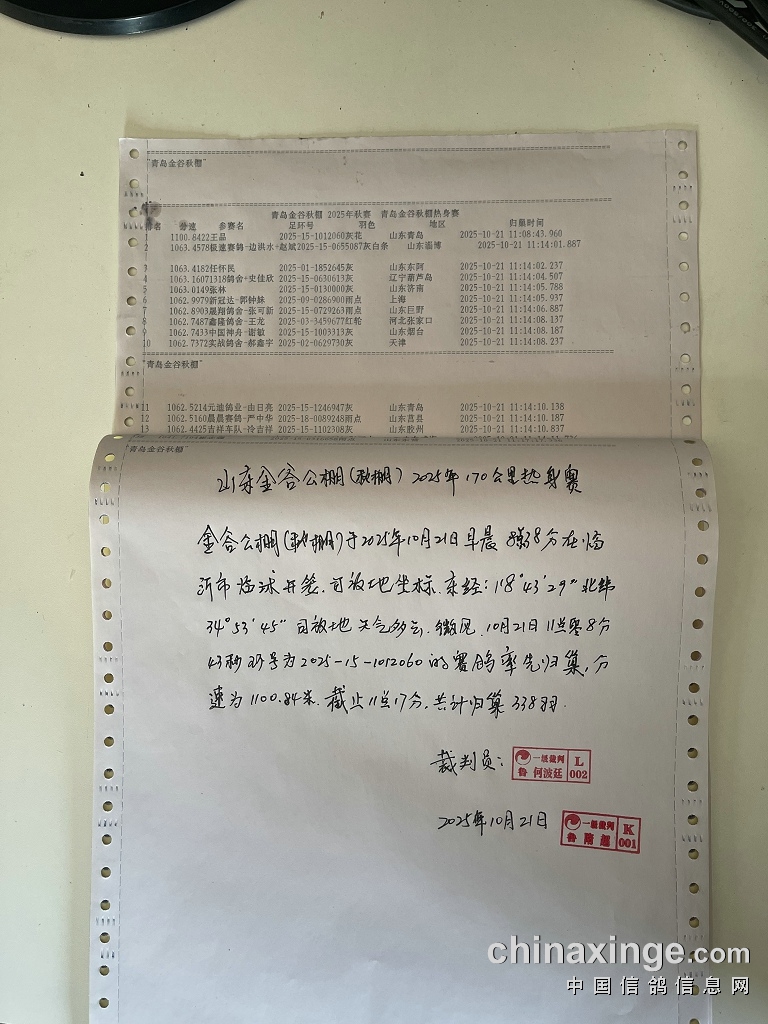 "青岛金谷秋棚"
青岛金谷秋棚 2025年秋赛 青岛金谷秋棚热身赛
名 分速 参赛名 足环号 羽色 地区 归巢时间
1 1100.8422王品 2025-15-1012060灰花 山东青岛 2025-10-21 11:08:43.960
2 1063.4578极速赛鸽-边洪水+赵斌2025-15-0655087灰白条 山东淄博 2025-10-21 11:14:01.887
3 1063.4182任怀民 2025-01-1852645灰 山东东阿 2025-10-21 11:14:02.237
4 1063.16071318鸽舍+史佳欣 2025-15-0630613灰 辽宁葫芦岛 2025-10-21 11:14:04.507
5 1063.0149张林 2025-15-0130000灰 山东济南 2025-10-21 11:14:05.788
6 1062.9979新冠达-郭钟妹 2025-09-0286900雨点 上海 2025-10-21 11:14:05.937
7 1062.8903晟翔鸽舍-张可新 2025-15-0729263雨点 山东巨野 2025-10-21 11:14:06.887
8 1062.7487鑫隆鸽舍-王龙 2025-03-3459677红轮 河北张家口 2025-10-21 11:14:08.137
9 1062.7433中国神舟-谢敏 2025-15-1003313灰 山东烟台 2025-10-21 11:14:08.187
10 1062.7372实战鸽舍-郝鑫宇 2025-02-0629730灰 天津 2025-10-21 11:14:08.237
"青岛金谷秋棚"
11 1062.5214元迪鸽业-由日亮 2025-15-1246947灰 山东青岛 2025-10-21 11:14:10.138
12 1062.5160晨晨赛鸽-严中华 2025-18-0089248雨点 山东莒县 2025-10-21 11:14:10.187
13 1062.4425吉祥车队-冷吉祥 2025-15-1102308灰 山东胶州 2025-10-21 11:14:10.837
"青岛金谷秋棚"
山东金谷公棚(秋棚)2025年170公里热身赛
金谷公棚(秋棚)于2025年10月21日早晨8点38分在临
沂市临沭开笼.司放地坐标.东经:118°43′29″北纬
34°53′45″司放地天气多云.微风.10月21日11点零8分
43秒环号为2025-15-1012060的赛鸽率先归巢,分
速为1100.84米.截止11点17分.共计归巢338羽.
裁判员: 一级裁判 鲁 何波廷 L 002
2025年10月21日 一级裁判 鲁 隋超 K 001
chinaxinge.com
中国信鸽信息网